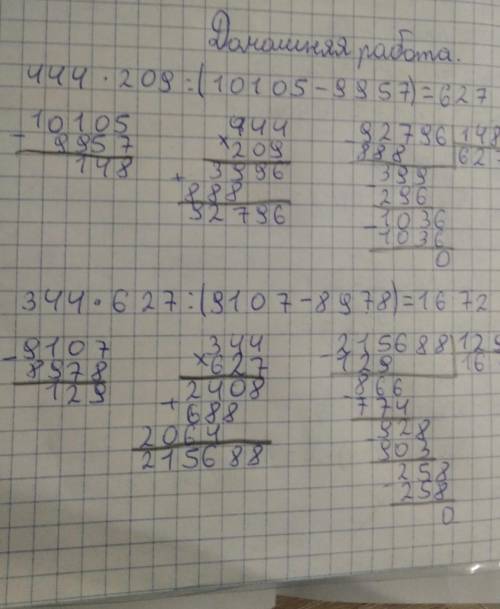 Домашняя работа.
444 · 209 : (10105 - 9957) = 627
10105
- 9957
148
444
× 209
+ 3996
888
92796
- 92796 148
888 627
- 399
296
- 1036
1036
0
344 · 627 : (9107 - 8978) = 1672
- 9107
8978
129
344
× 627
2408
+ 688
2064
215688
- 215688 129
129 16
- 866
774
- 928
903
- 258
258
0